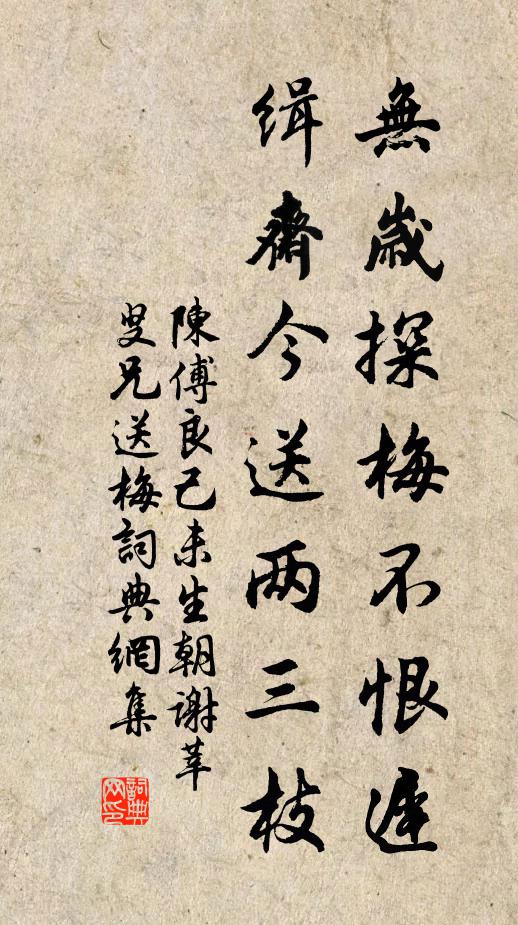 無歲探梅不恨遲
緝齋今送两三枝
陳傅良己未生朝謝莘
叟兄送梅詞典網集
詞典网印